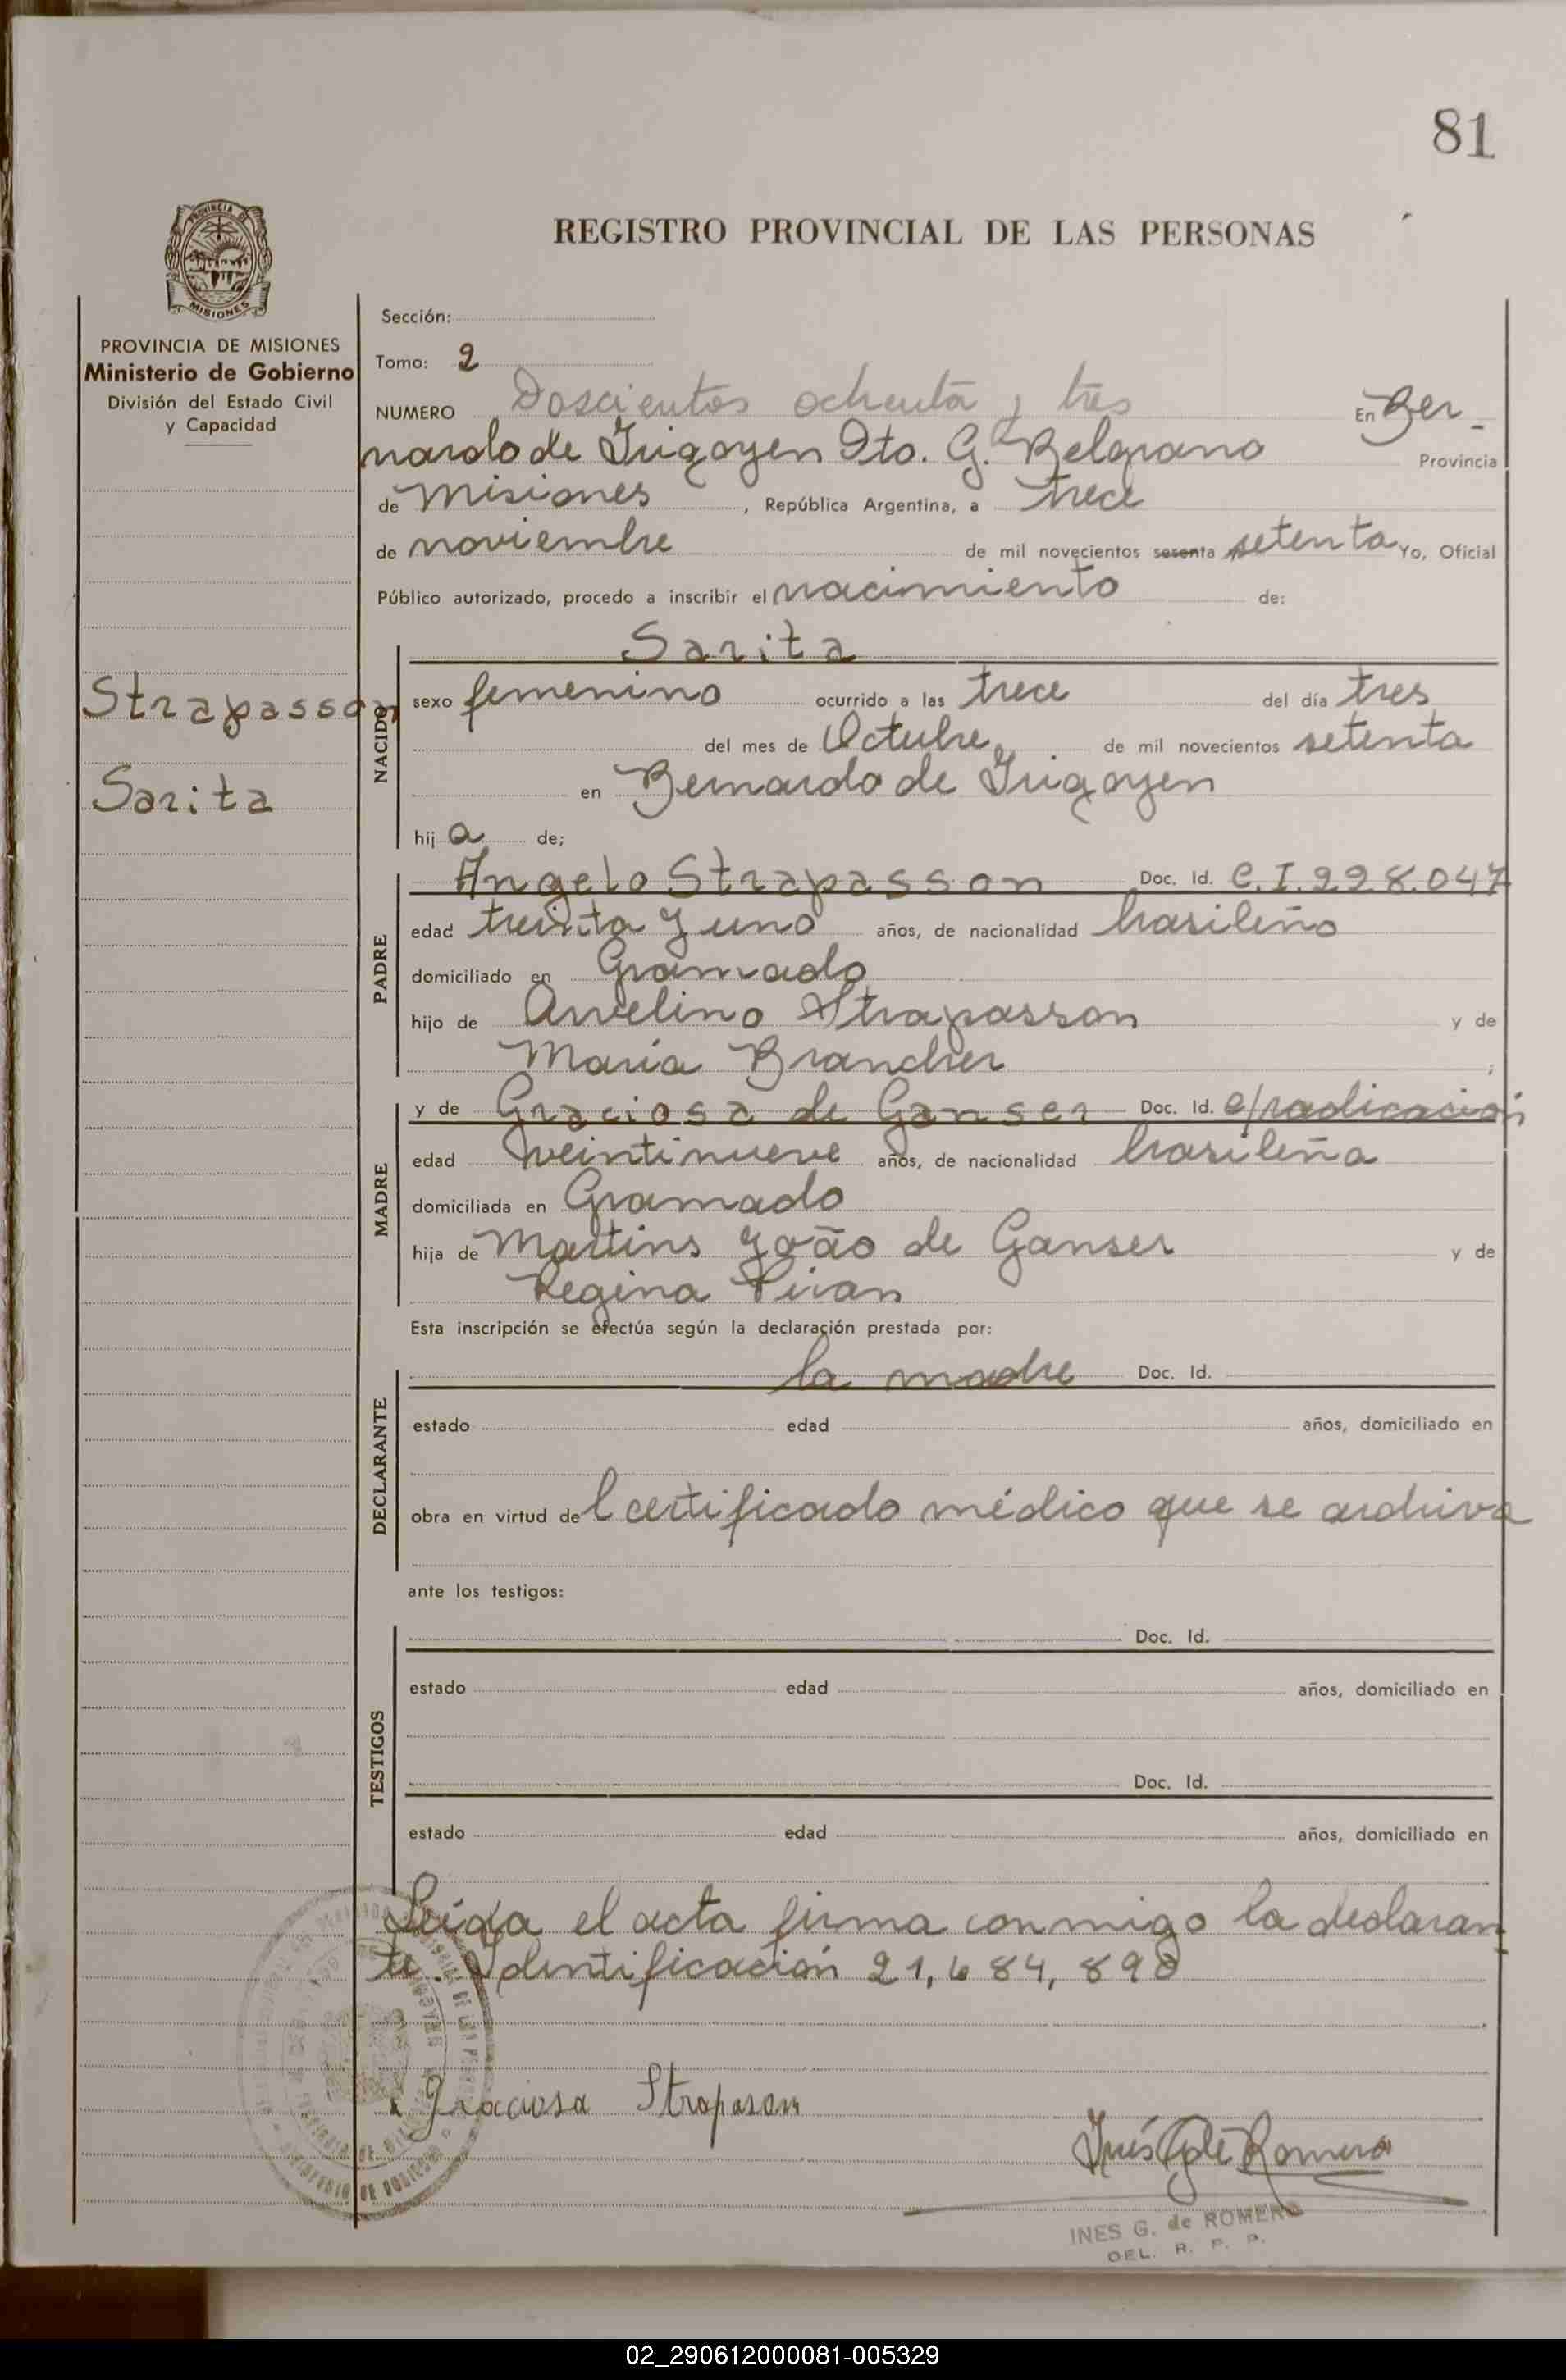 81
REGISTRO PROVINCIAL DE LAS PERSONAS
PROVINCIA DE
MISIONES
PROVINCIA DE MISIONES
Ministerio de Gobierno
División del Estado Civil
y Capacidad
Strapasson
Sarita
Sección:
Tomo: 2
NUMERO Doscientos ochenta y tres En Ber-
nardo de Irigoyen Dto. G. Belgrano Provincia
de Misiones, República Argentina, a trece
de noviembre de mil novecientos sesenta setenta Yo, Oficial
Público autorizado, procedo a inscribir el nacimiento de:
NACIDO
Sarita
sexo femenino ocurrido a las trece del día tres
del mes de Octubre de mil novecientos setenta
en Bernardo de Irigoyen
hij a de;
PADRE
Angelo Strapasson Doc. Id. C.I.998.047
edad treinta y uno años, de nacionalidad brasileño
domiciliado en Gramado
hijo de Avelino Strapasson y de
María Brancher ;
MADRE
y de Graciosa de Ganser Doc. Id. c/radicación
edad veintinueve años, de nacionalidad brasileña
domiciliada en Gramado
hija de Martins João de Ganser y de
Regina
Esta inscripción se efectúa según la declaración prestada por:
DECLARANTE
la madre Doc. Id.
estado edad años, domiciliado en
obra en virtud del certificado médico que se archiva
ante los testigos:
TESTIGOS
Doc. Id.
estado edad años, domiciliado en
Doc. Id.
estado edad años, domiciliado en
Leída el acta firma conmigo la declaran-
te. Identificación 21,684,898
Graciosa Strapason
Inés G de Romero
INES G. de ROMERO
DEL. R. P. P.
02_290612000081-005329